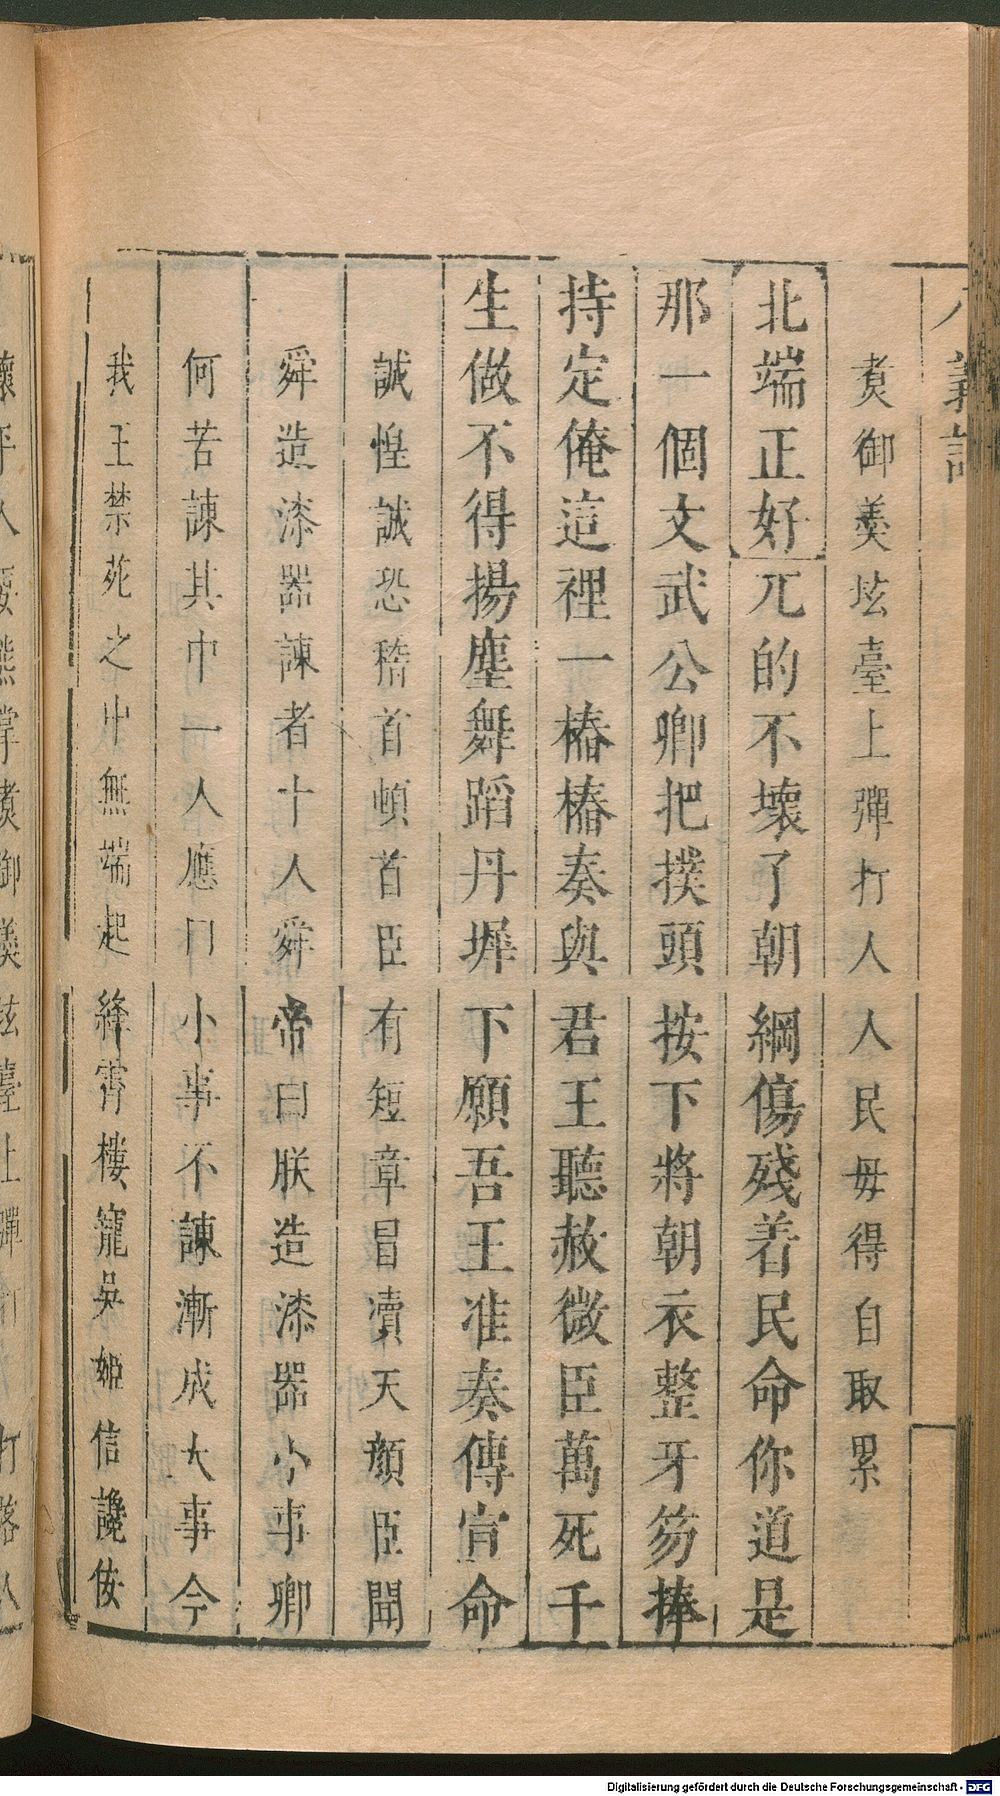 八義記
煑御羹垓臺上彈打人人民毋得自取累
北端正好兀的不壞了朝綱傷殘着民命你道是
那一個文武公卿把撲頭按下將朝衣整牙笏捧
持定俺這裡一樁樁奏與君王聽赦微臣萬死千
生做不得揚塵舞蹈丹墀下願吾王准奏傳宣命
誠惶誠恐稽首頓首臣有短章冒凟天顏臣聞
舜造漆器諫者十人舜帝曰朕造漆器小事卿
何苦諫其中一人應曰小事不諫漸成大事今
我王禁苑之中無端起絳霄樓寵吳姬信讒佞
Digitalisierung gefördert durch die Deutsche Forschungsgemeinschaft - DFG